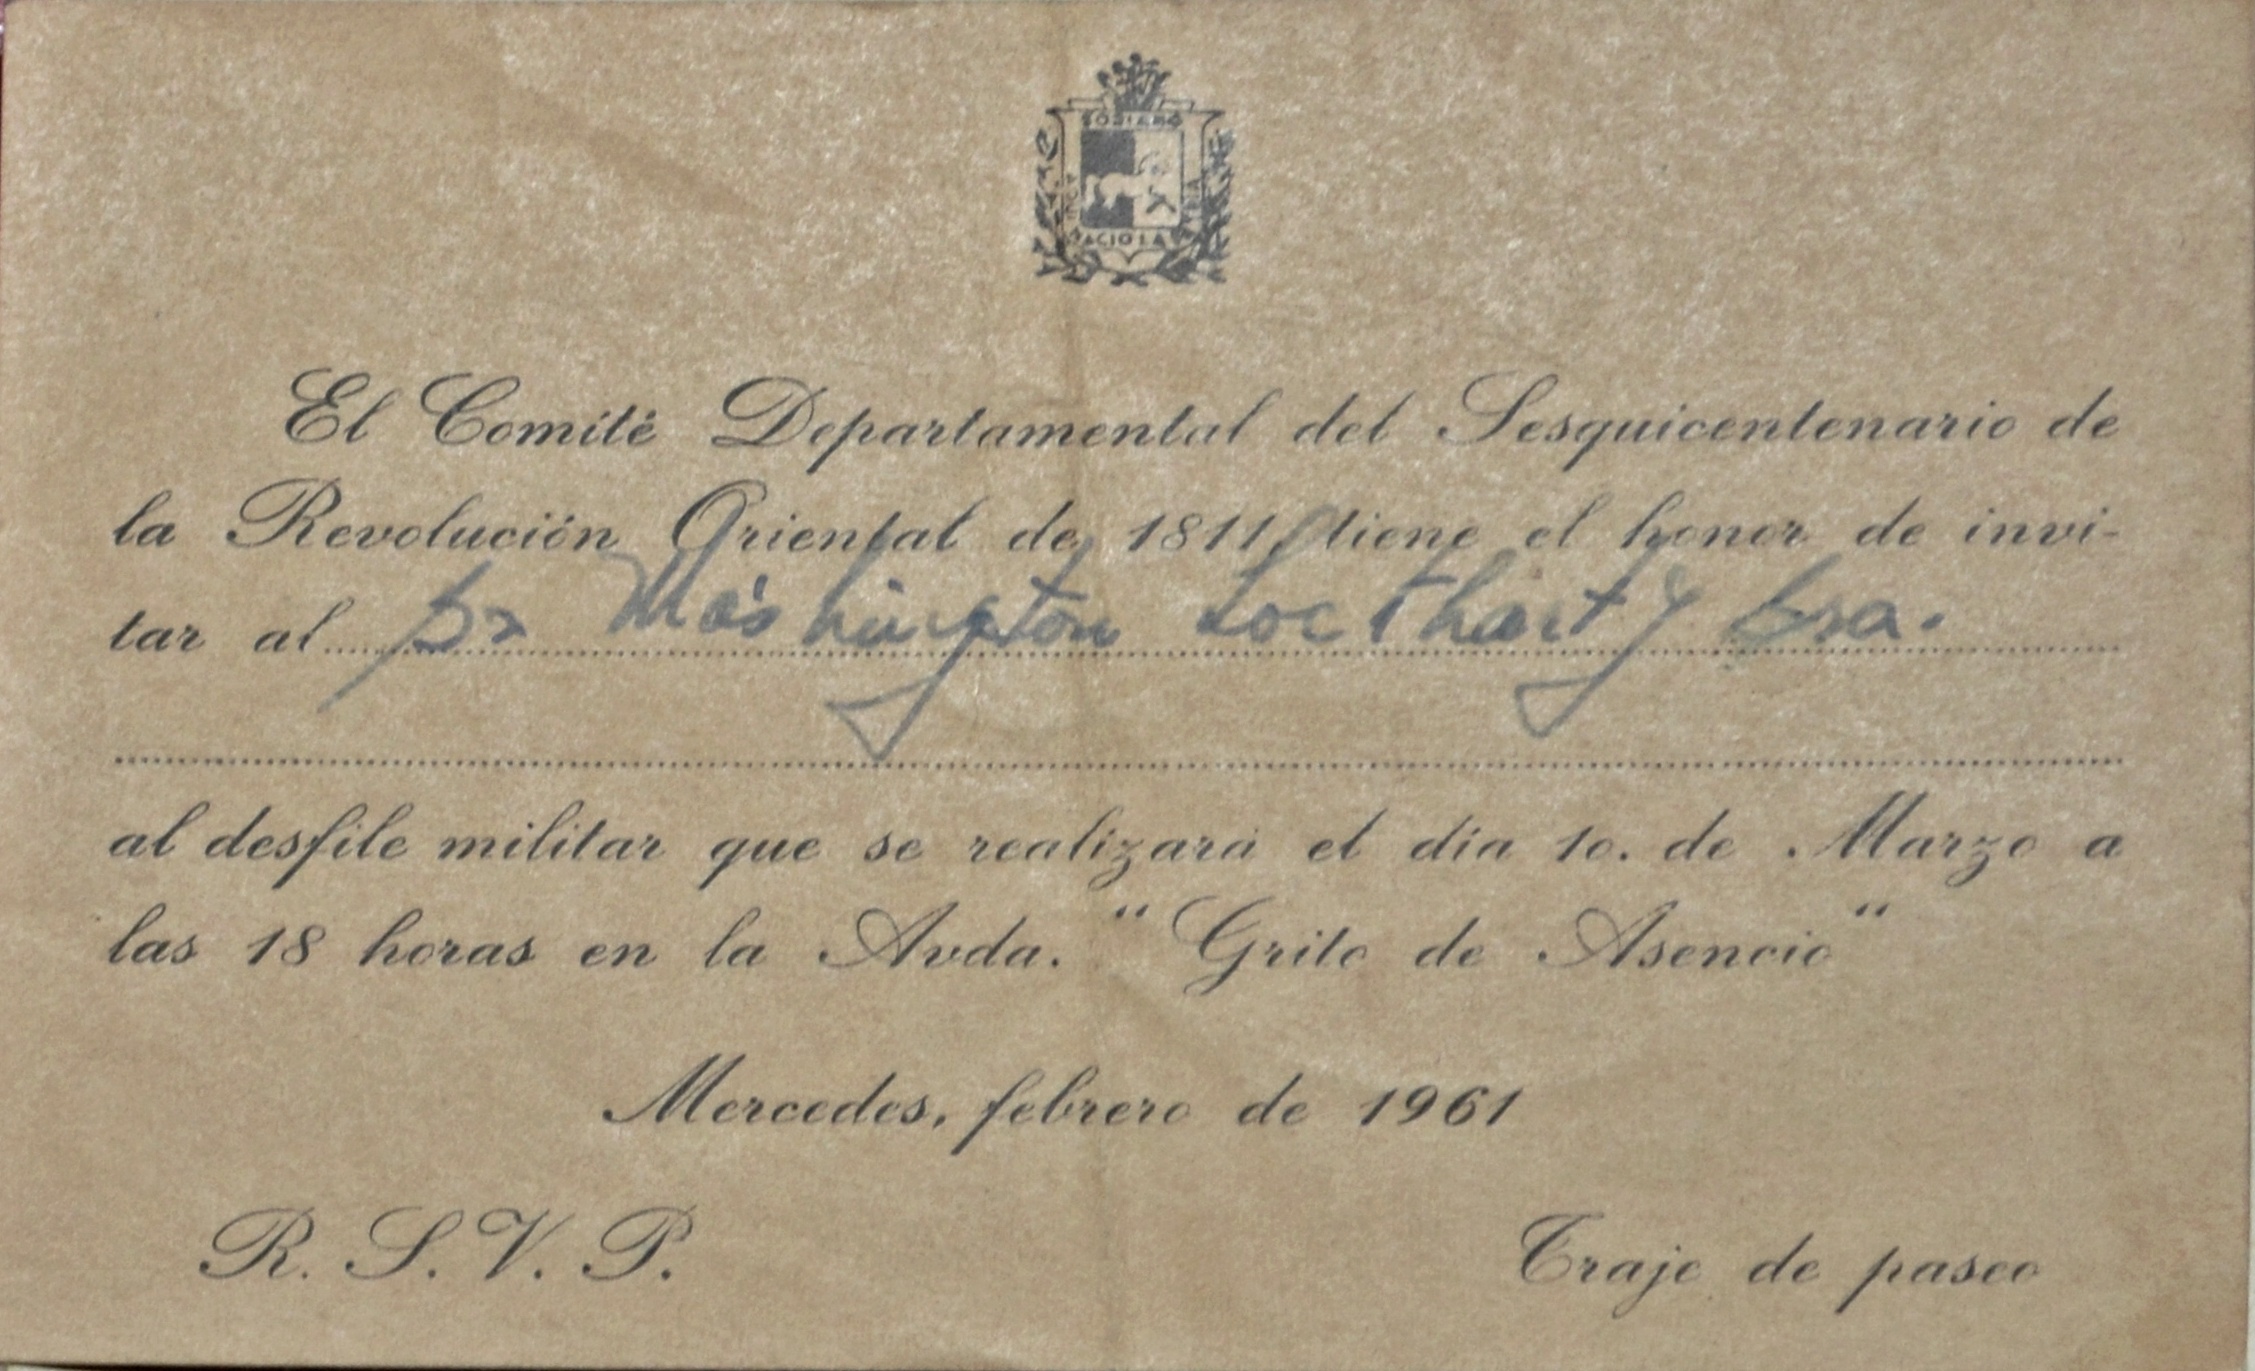 SORIANO
AQUI NACIO LA PATRIA
El Comité Departamental del Sesquicentenario de
la Revolución Oriental de 1811, tiene el honor de invi-
tar al Sr Washington Lockhart y Sra.
al desfile militar que se realizará el día 1o. de Marzo a
las 18 horas en la Avda. “Grito de Asencio“
Mercedes, febrero de 1961
R. S. V. P.
Traje de paseo